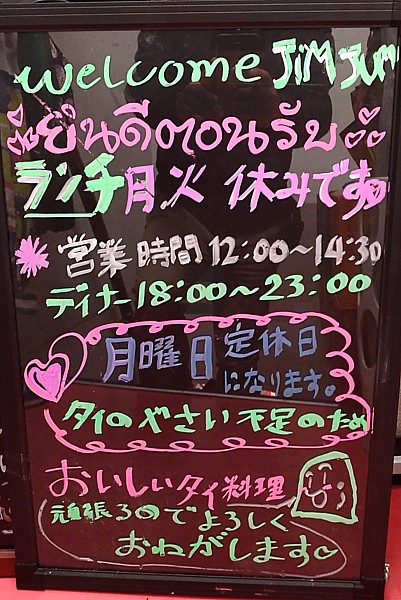 welcome JiM JUM
ยินดีตอนรับ
ランチ月火 休みです
営業時間 12:00〜14:30
ディナー18:00〜23:00
月曜日 定休日
になります。
タイのやさい不足のため
おいしいタイ料理
頑張るのでよろしく
おねがします